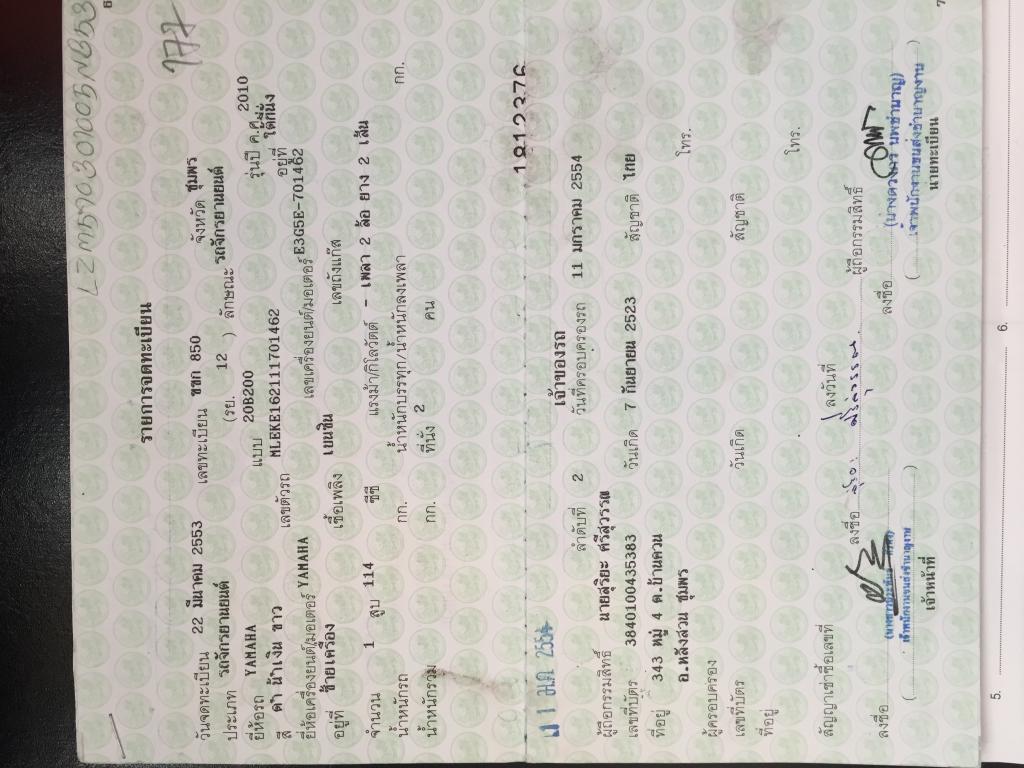 LZM590301005NB53
177
รายการจดทะเบียน
วันจดทะเบียน 22 มีนาคม 2553 เลขทะเบียน ขขก 850 จังหวัด ชุมพร
ประเภท รถจักรยานยนต์ (รย. 12 ) ลักษณะ รถจักรยานยนต์
ยี่ห้อรถ YAMAHA แบบ 20B200 รุ่นปี ค.ศ. 2010
สี ดำ น้ำเงิน ขาว เลขตัวรถ MLEKE162111701462 อยู่ที่ ใต้ที่นั่ง
ยี่ห้อเครื่องยนต์/มอเตอร์ YAMAHA เลขเครื่องยนต์/มอเตอร์ E3G5E-701462
อยู่ที่ ซ้ายเครื่อง เชื้อเพลิง เบนซิน เลขถังแก๊ส
จำนวน 1 สูบ 114 ซีซี แรงม้า/กิโลวัตต์ - เพลา 2 ล้อ ยาง 2 เส้น
น้ำหนักรถ กก. น้ำหนักบรรทุก/น้ำหนักลงเพลา กก.
น้ำหนักรวม กก. ที่นั่ง 2 คน
1812376
เจ้าของรถ
11 ม.ค. 2554
ลำดับที่ 2 วันที่ครอบครองรถ 11 มกราคม 2554
ผู้ถือกรรมสิทธิ์ นายสุริยะ ศรีสุวรรณ
เลขที่บัตร 3840100435383 วันเกิด 7 กันยายน 2523 สัญชาติ ไทย
ที่อยู่ 343 หมู่ 4 ต.บ้านควน
อ.หลังสวน ชุมพร โทร.
ผู้ครอบครอง
เลขที่บัตร วันเกิด สัญชาติ
ที่อยู่ โทร.
สัญญาเช่าซื้อเลขที่ ลงวันที่
ลงชื่อ ผู้ถือกรรมสิทธิ์
ลงชื่อ ลงชื่อ
เจ้าหน้าที่ นายทะเบียน
5. 6.
6
7